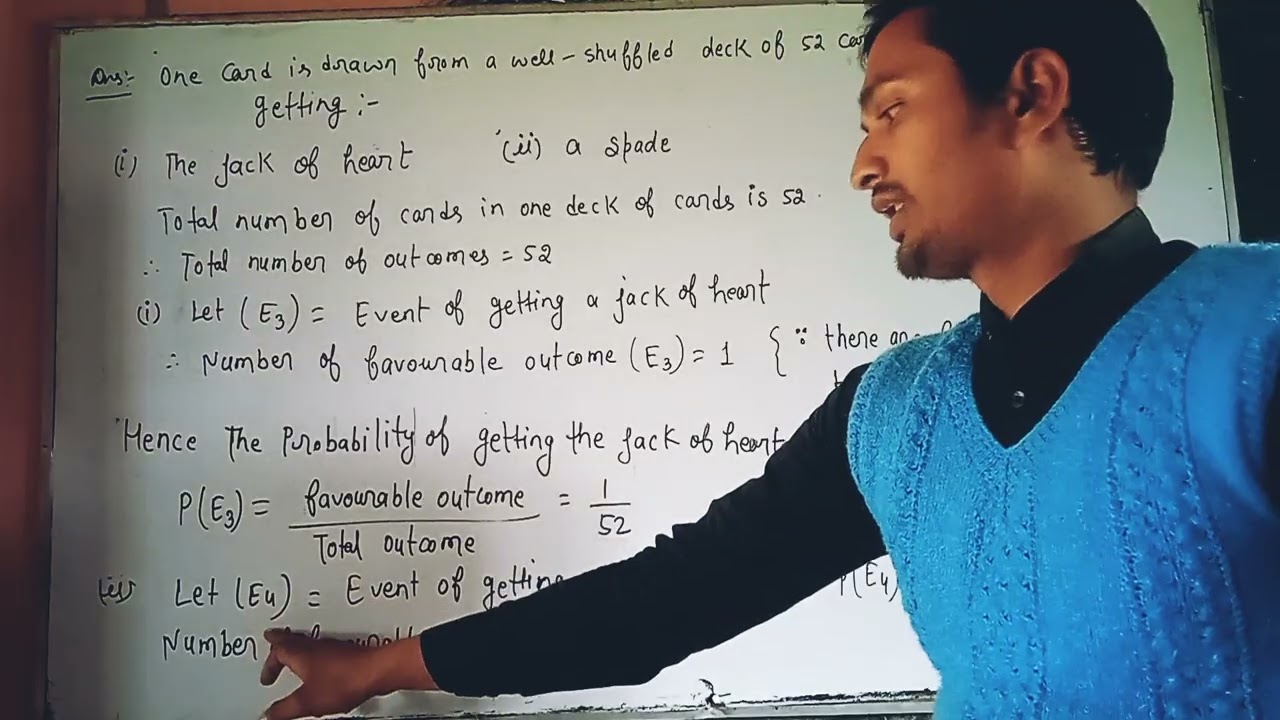 Ans:- One Card is drawn from a well-shuffled deck of 52
getting :-
(i) The Jack of heart (ii) a spade
Total number of cards in one deck of cards is 52.
∴ Total number of outcomes = 52
(i) Let (E3) = Event of getting a jack of heart
∴ Number of favourable outcome (E3) = 1 { ∵ there
Hence The Probability of getting the Jack of heart
P(E3) = favourable outcome / Total outcome = 1/52
(ii) Let (E4) = Event of getting P(E4)
Number